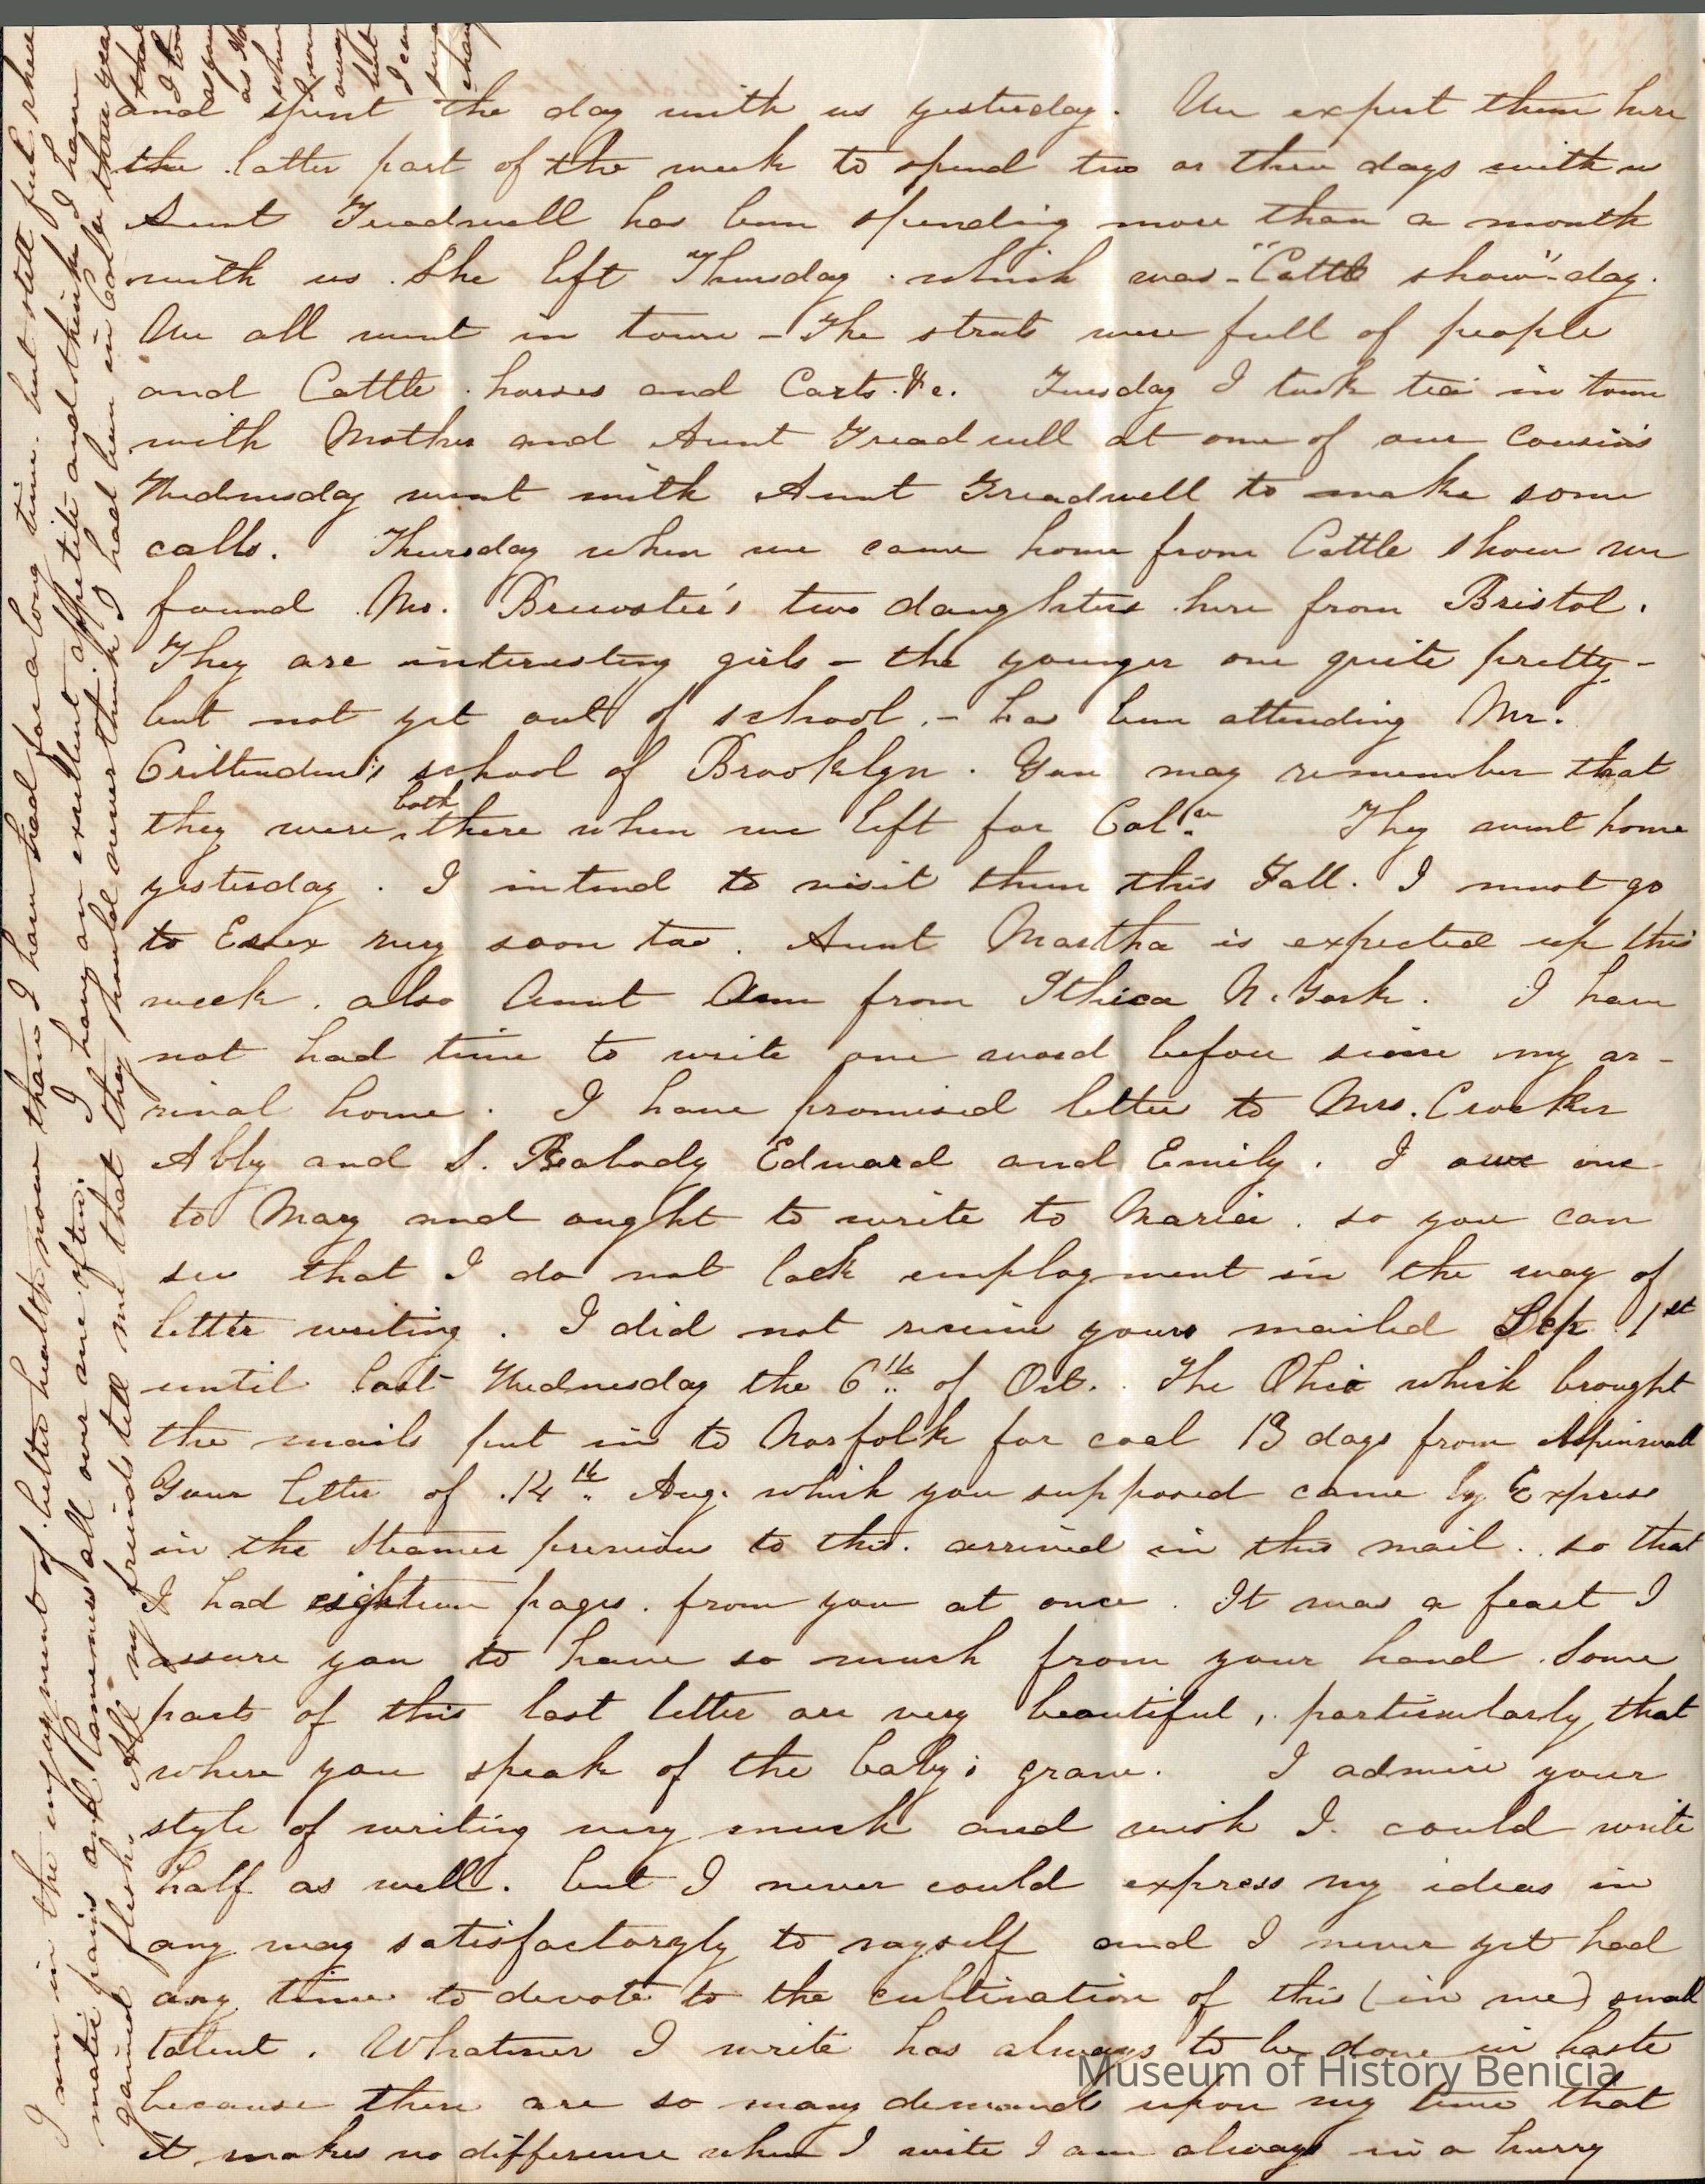 and spent the day with us yesterday. We expect them here
the latter part of the week to spend two or three days with us
Aunt Treadwell has been spending more than a month
with us. She left Thursday. which was "Cattle show" day.
We all went in town - The streets were full of people
and Cattle. horses and Carts. &c. Tuesday I took tea in town
with Mother and Aunt Treadwell at one of our Cousin's
Wednesday went with Aunt Treadwell to make some
calls. Thursday when we came home from Cattle Show we
found Mr. Brewster's two daughters here from Bristol.
They are interesting girls - the younger one quite pretty -
but not yet out of school. - has been attending Mr.
Crittenden's school of Brooklyn. You may remember that
they were both there when we left for Cal.a They went home
yesterday. I intend to visit them this Fall. I must go
to Essex very soon too. Aunt Martha is expected up this
week. also Aunt Ann from Ithica N. York. I have
not had time to write one word before since my ar-
rival home. I have promised letter to Mrs. Crocker
Abby and S. Peabody Edward and Emily. I owe one
to Mary and ought to write to Maria. so you can
see that I do not lack employment in the way of
letter writing. I did not receive yours mailed Sep. 1st
until last Wednesday the 6th of Oct. The Ohio which brought
the mails put in to Norfolk for coal 13 days from Aspinwall
Your letter of 14th Aug. which you supposed came by Express
in the Steamer previous to this. arrived in this mail. so that
I had eighteen pages. from you at once. It was a feast I
assure you to have so much from your hand. Some
parts of this last letter are very beautiful, particularly that
where you speak of the baby's grave. I admire your
style of writing very much and wish I could write
half as well. but I never could express my ideas in
any way satisfactoryly to myself and I never yet had
any time to devote to the cultivation of this (in me) small
talent. Whatever I write has always to be done in haste
because there are so many demands upon my time that
it makes no difference when I write I am always in a hurry
I am in the enjoyment of better health now than I have had for a long time. but still feel rheu
matic pains and lameness all over me often. I have an excellent appetite and think I have
gained flesh. All my friends tell me that they should never think I had been in Cala three years
Museum of History Benicia